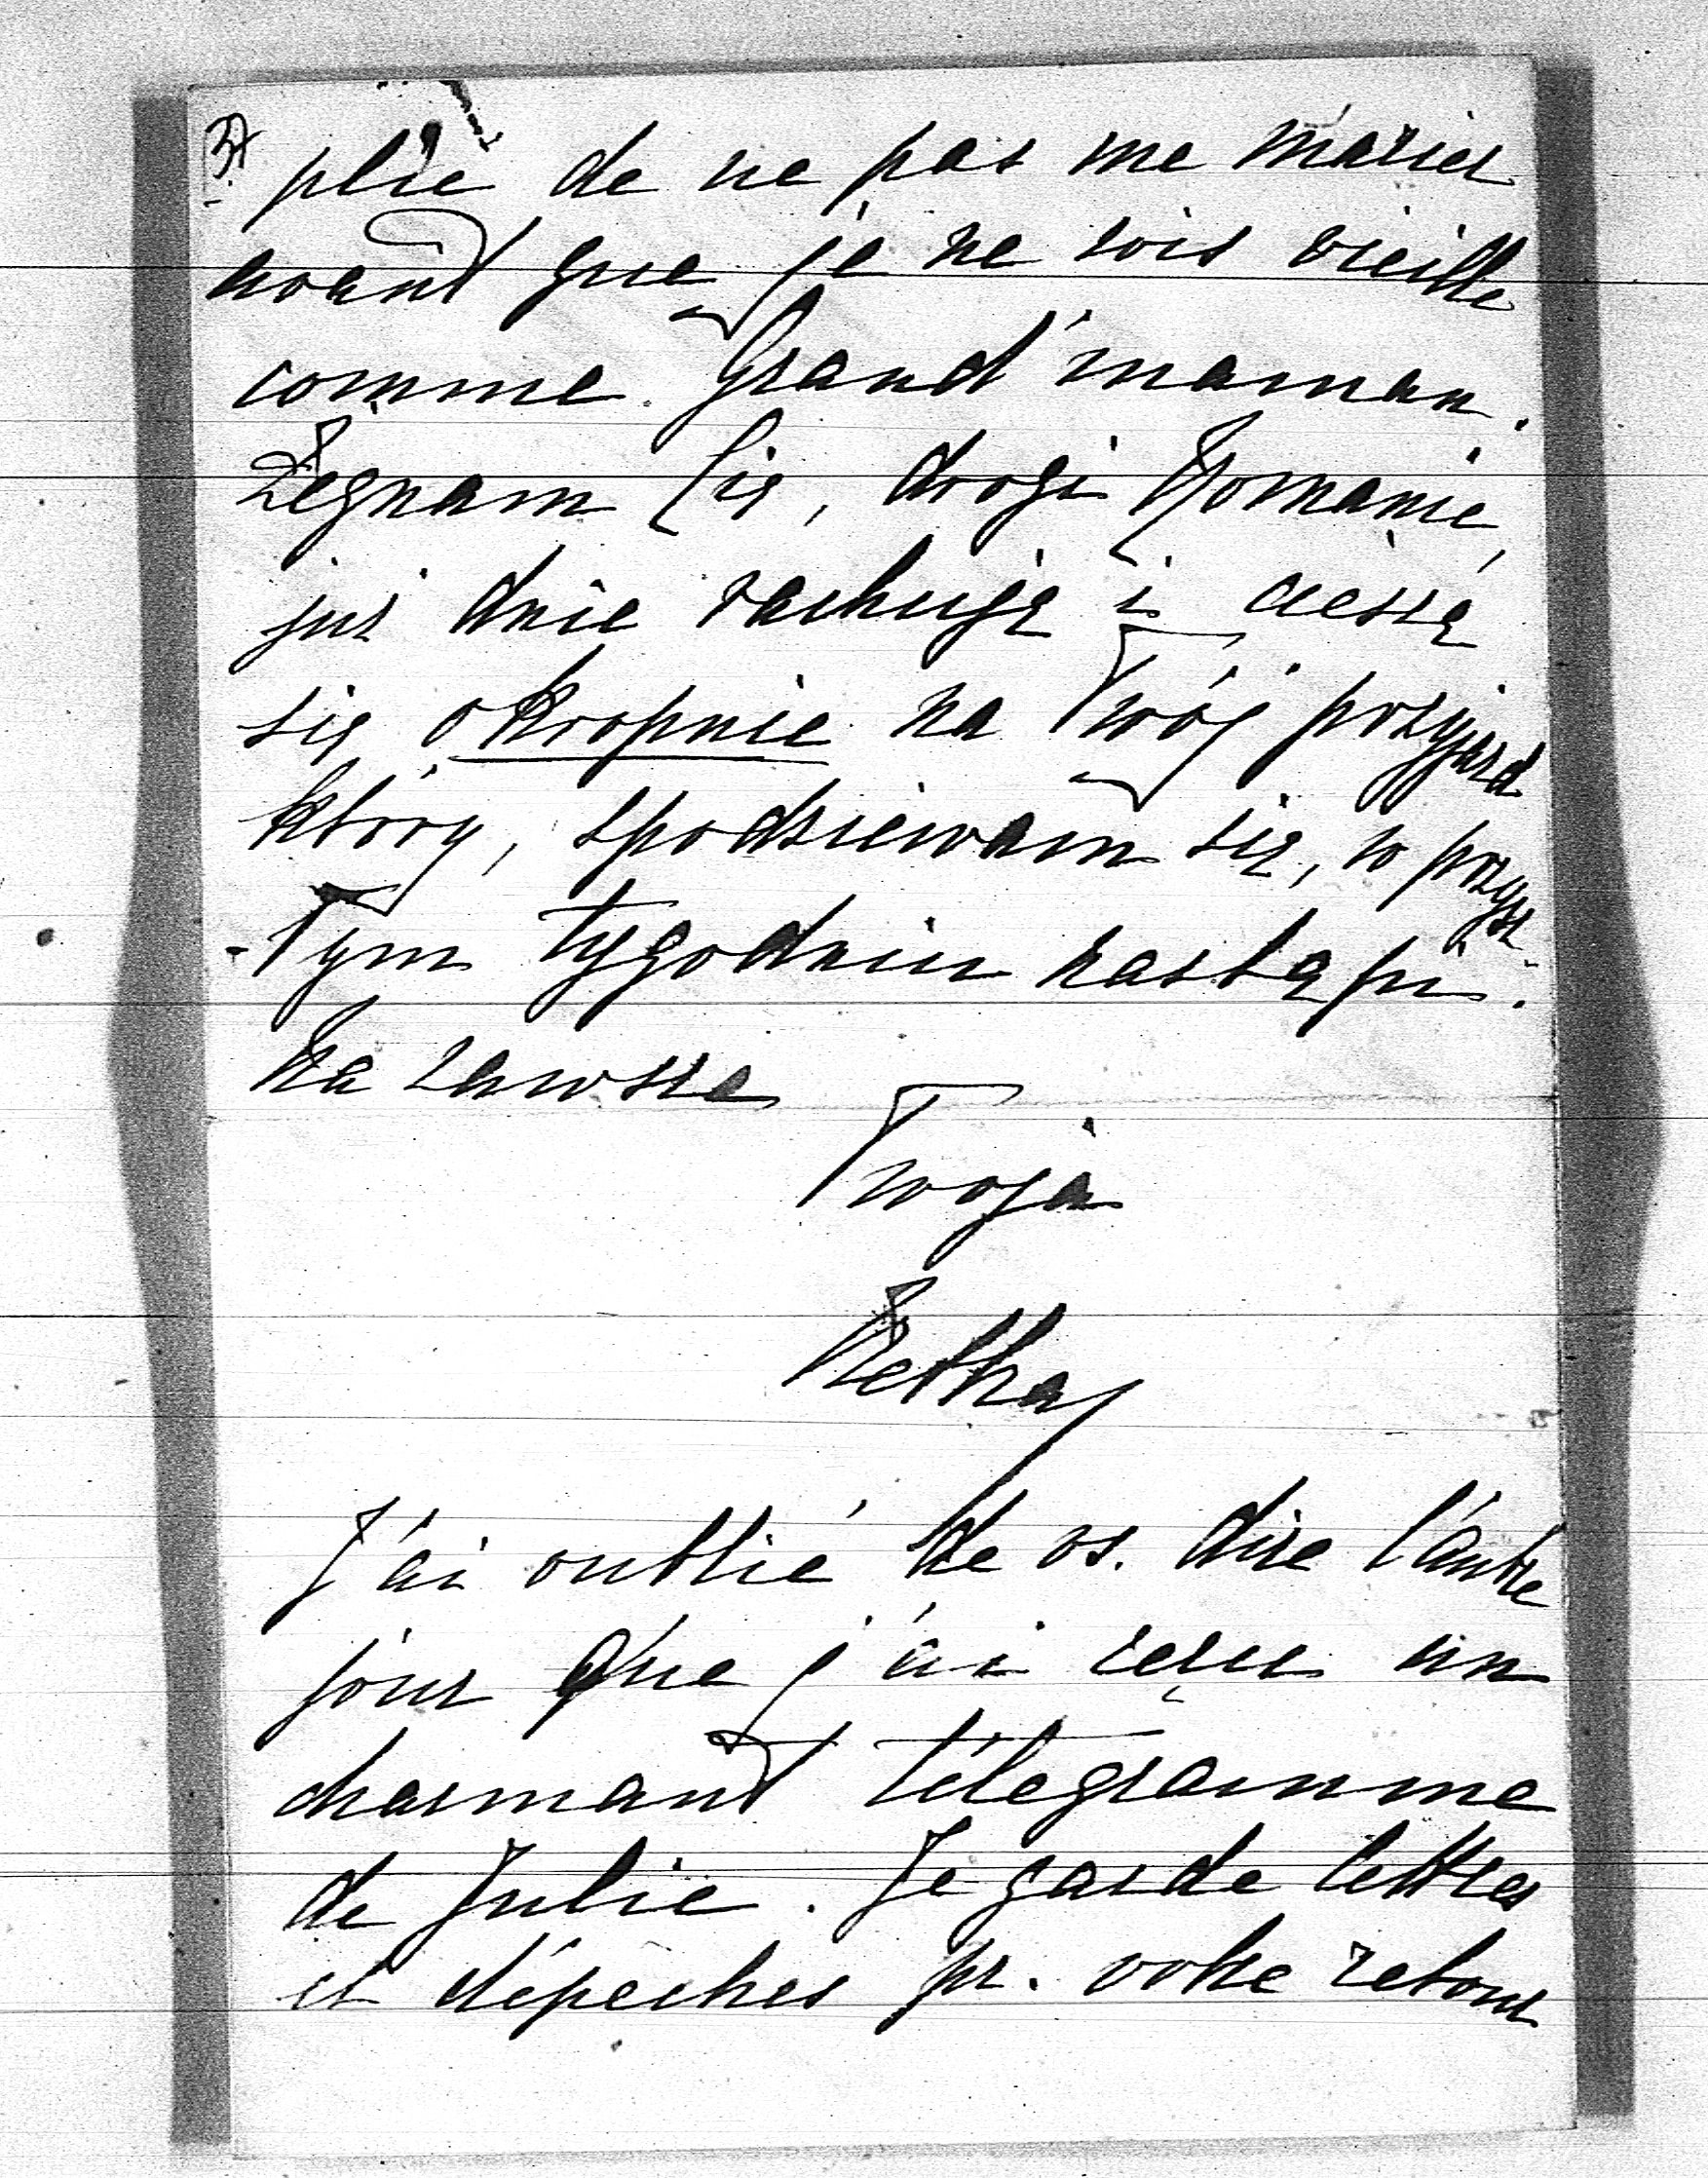 3)
plié de ne pas me marier
avant que je ne sois vieille
comme Grand'maman.
Żegnam Cię, drogi Romanie,
już dnie rachuję i cieszę
się okropnie na Twój przyjazd
który, spodziewam się, w przysz-
-łym tygodniu nastąpi.
Na zawsze
Twoja
Retka
J'ai oublié de vs. dire l'autre
jour que j'ai reçu un
charmant télégramme
de Julie. Je garde lettres
et dépeches pr. votre retour